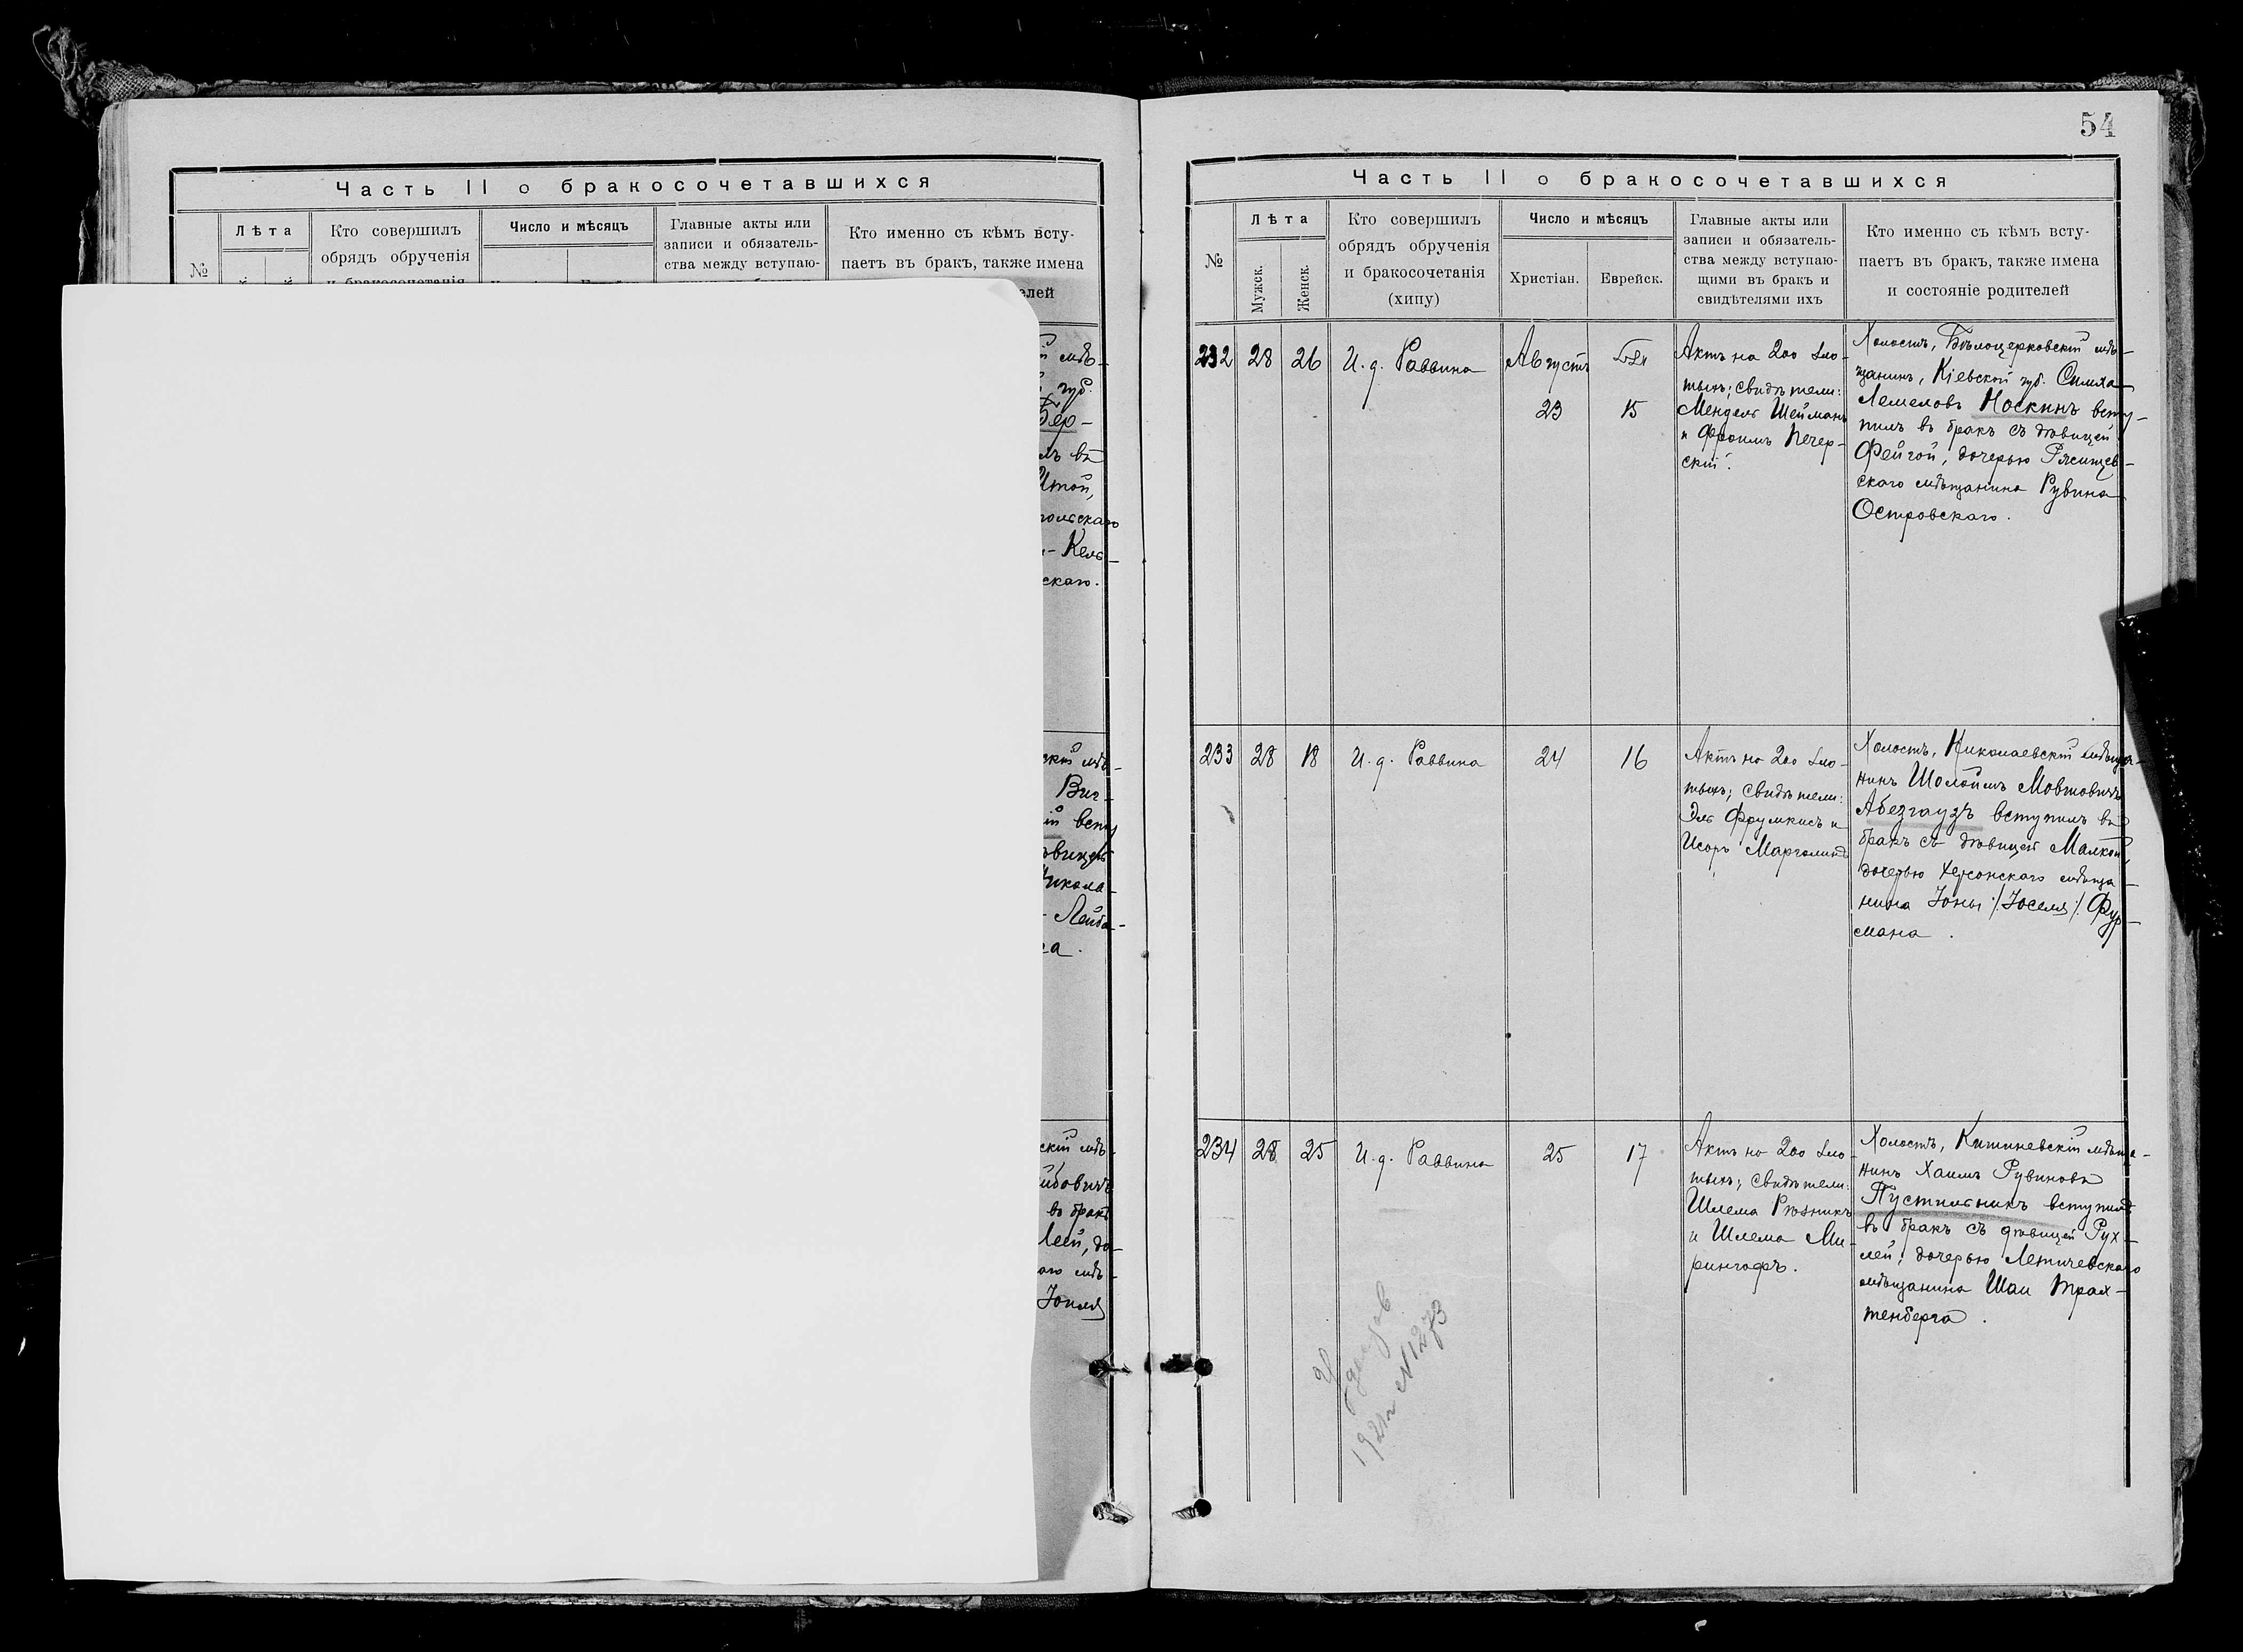 Часть II о бракосочетавшихся
№
Лѣта
Кто совершилъ
обрядъ обрученія
Число и мѣсяцъ
Главные акты или
записи и обязатель-
ства между вступаю-
Кто именно съ кѣмъ всту-
паетъ въ бракъ, также имена
54
Часть II о бракосочетавшихся
№
Лѣта
Мужск.
Женск.
Кто совершилъ
обрядъ обрученія
и бракосочетанія
(хипу)
Число и мѣсяцъ
Христіан.
Еврейск.
Главные акты или
записи и обязатель-
ства между вступаю-
щими въ бракъ и
свидѣтелями ихъ
Кто именно съ кѣмъ всту-
паетъ въ бракъ, также имена
и состояніе родителей
232
28
26
И. д. Раввина
Августъ
23
15
Актъ на 200 зло-
тыхъ; свидѣтели:
Мендель Шейманъ
и Фроимъ Печер-
скій.
Холостъ, Бѣлоцерковскій мѣ-
щанинъ, Кіевской губ. Симха
Лемеловъ Носкинъ всту-
пилъ въ бракъ съ дѣвицей
Фейгой, дочерью Рясищев-
скаго мѣщанина Рувина
Островскаго.
233
28
18
И. д. Раввина
24
16
Актъ на 200 зло-
тыхъ; свидѣтели:
Эль Фрумкисъ и
Исоръ Марголинъ
Холостъ, Николаевскій мѣща-
нинъ Шолоимъ Мовшовичъ
Абезгаузъ вступилъ въ
бракъ съ дѣвицей Малкой,
дочерью Херсонскаго мѣща-
нина Іоны /Іоселя/ Фур-
мана.
234
28
25
И. д. Раввина
25
17
Актъ на 200 зло-
тыхъ; свидѣтели:
Шлема Рѣзникъ
и Шлема Ми-
рингофъ.
Холостъ, Кишиневскій мѣща-
нинъ Хаимъ Рувиновъ
Пустильникъ вступилъ
въ бракъ съ дѣвицей Рух-
лей, дочерью Летичевскаго
мѣщанина Шаи Трах-
тенберга.
№1273